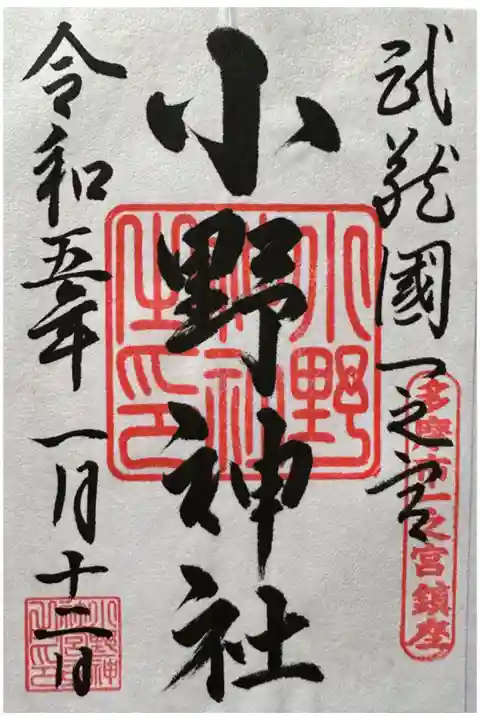 武蔵國一之宮
多摩市一之宮鎮座
小野神社
小野神社之印
令和五年一月十二日
小野神社之印